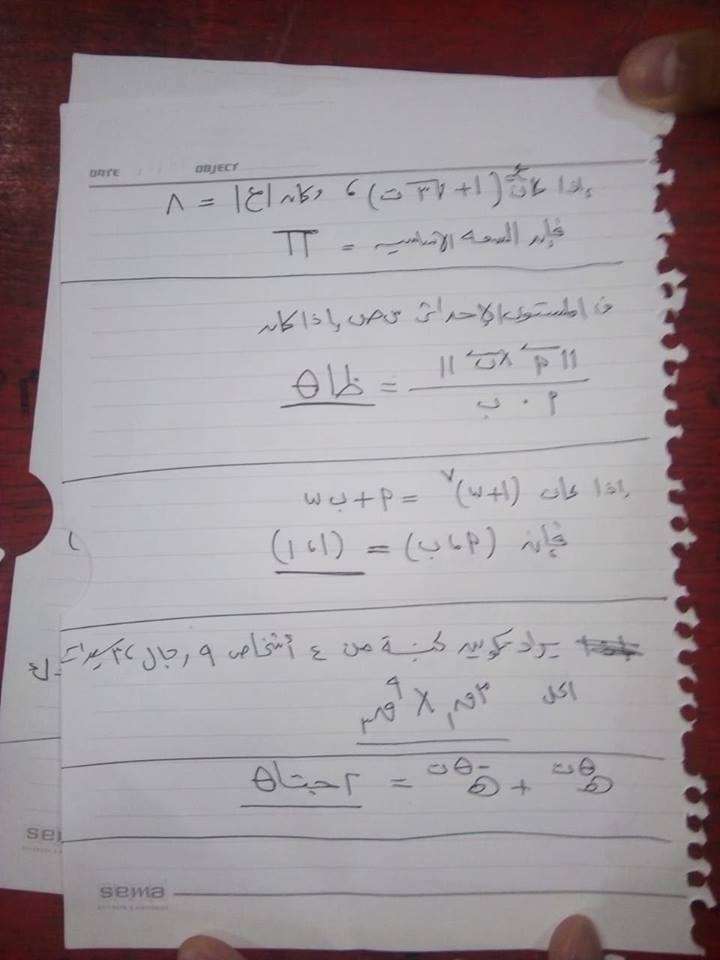 DATE OBJECT
إذا كان (١ + √٣ ت) ، وكان |ع| = ٨
فإن السعة الأساسية = π
في المستوى الإحداثي س ص إذا كان
|| أ × ب || / أ · ب = ظا θ
إذا كان (١ + w)^٧ = أ + ب w
فإن (أ ، ب) = (١ ، ١)
يراد تكوين لجنة من ٤ أشخاص ٩ رجال ، ٣ سيدات
الحل ٣ق١ × ٩ق٣
هـ^θت + هـ^-θت = ٢ جتا θ
sema